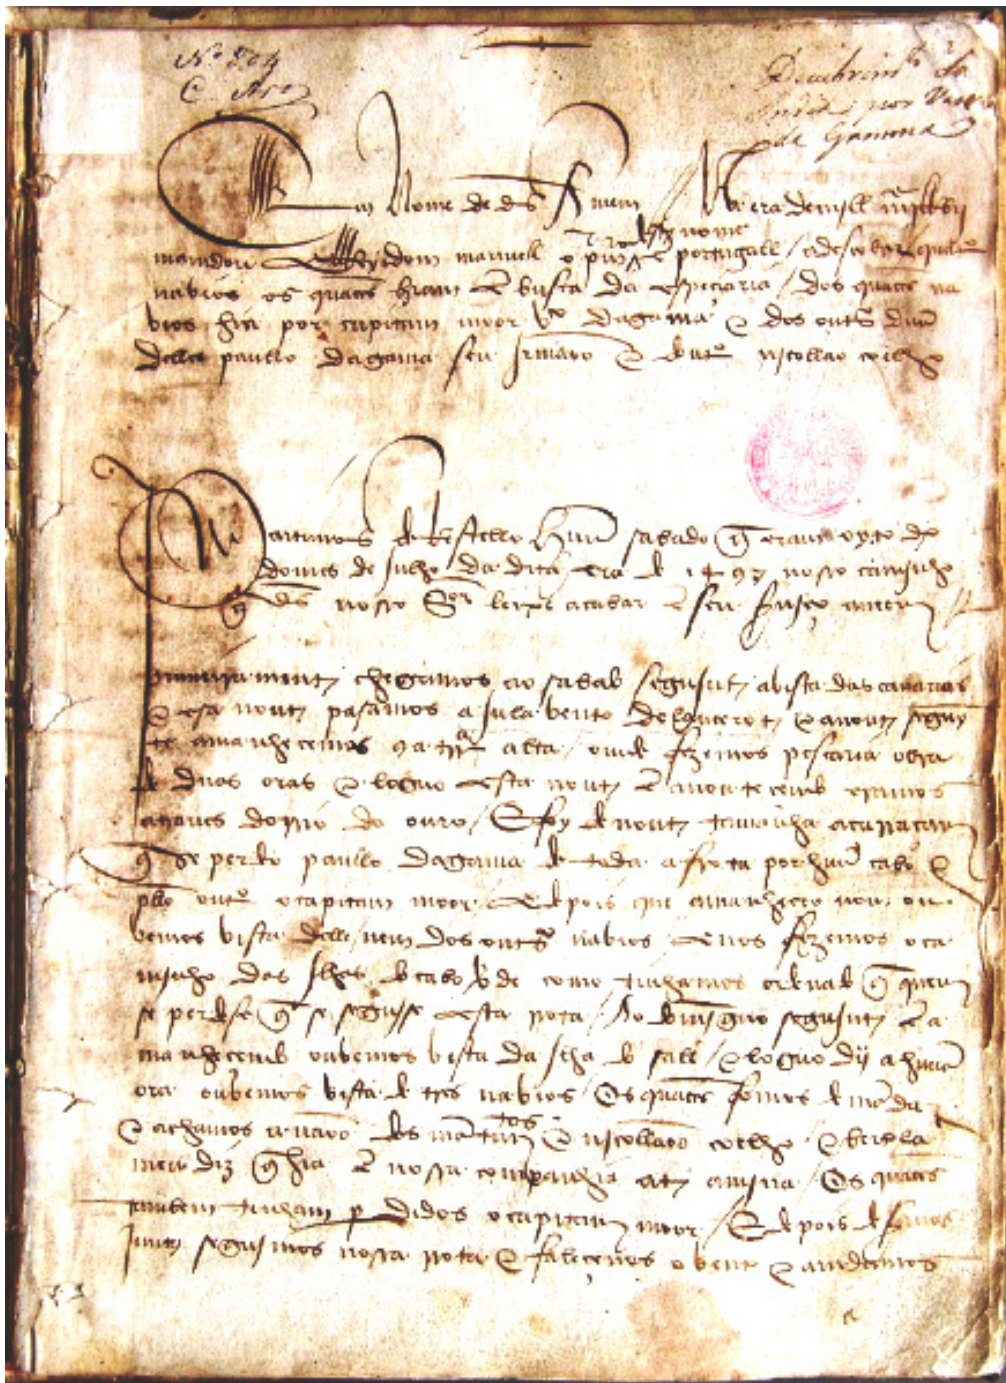 Nº 804
Descobrimto da
India por Vasco
de Gamma
Em Nome de ds Amem // Na era de mill iiijc lRvij
mandou ellRey dom manuell o primo deste nome em portugall / a descobrir quatro
navios os quaees hiam em busca da especiaria / dos quaees na
vios hia por capitam moor Vco dagama e dos outros duũ
delles paullo dagama seu Irmaão e do outro nicollao coelho
Partimos de Restello huũ sabado que eram oyto dias
do mes de Julho da dita era de 1497 nosso caminho
que ds nosso Sor leixe acabar em seu serviço amem
primeiramente chegamos ao sabado seguinte a vista das canarias
e esa noute pasamos a Julavento de lançarote e a noute seguin
te amanhecemos com a terra alta / omde fezemos pescaria obra
de duas oras e loguo esta noute em anoutecendo eramos
atraves do Rio do ouro / E foy de noute tamanha a çarraçam
que se perdeo paullo dagama de toda a frota por huũ cabo e
pello outro o capitam moor / E depois que amanheceo nom ou
vemos vista delle / nem dos outros navios e nos fezemos o ca
minho das Ilhas do cabo verde como tinhamos ordenado que quem
se perdese que se seguisse esta rota / Ao dominguo seguinte em a
manhecendo ouvemos vista da Ilha do sall / e loguo dhi a huũa
ora ouvemos vista de tres navios / Os quaees fomos demandar
e achamos a naao dos mantimentos e nicollao coelho e bertola
meu diz que hia em nossa companhia ate a mina / Os quaees
tambem tinham perdidos o capitam moor / E depois de sermos
juntos seguimos nossa rota e faleceonos o vento e andamos